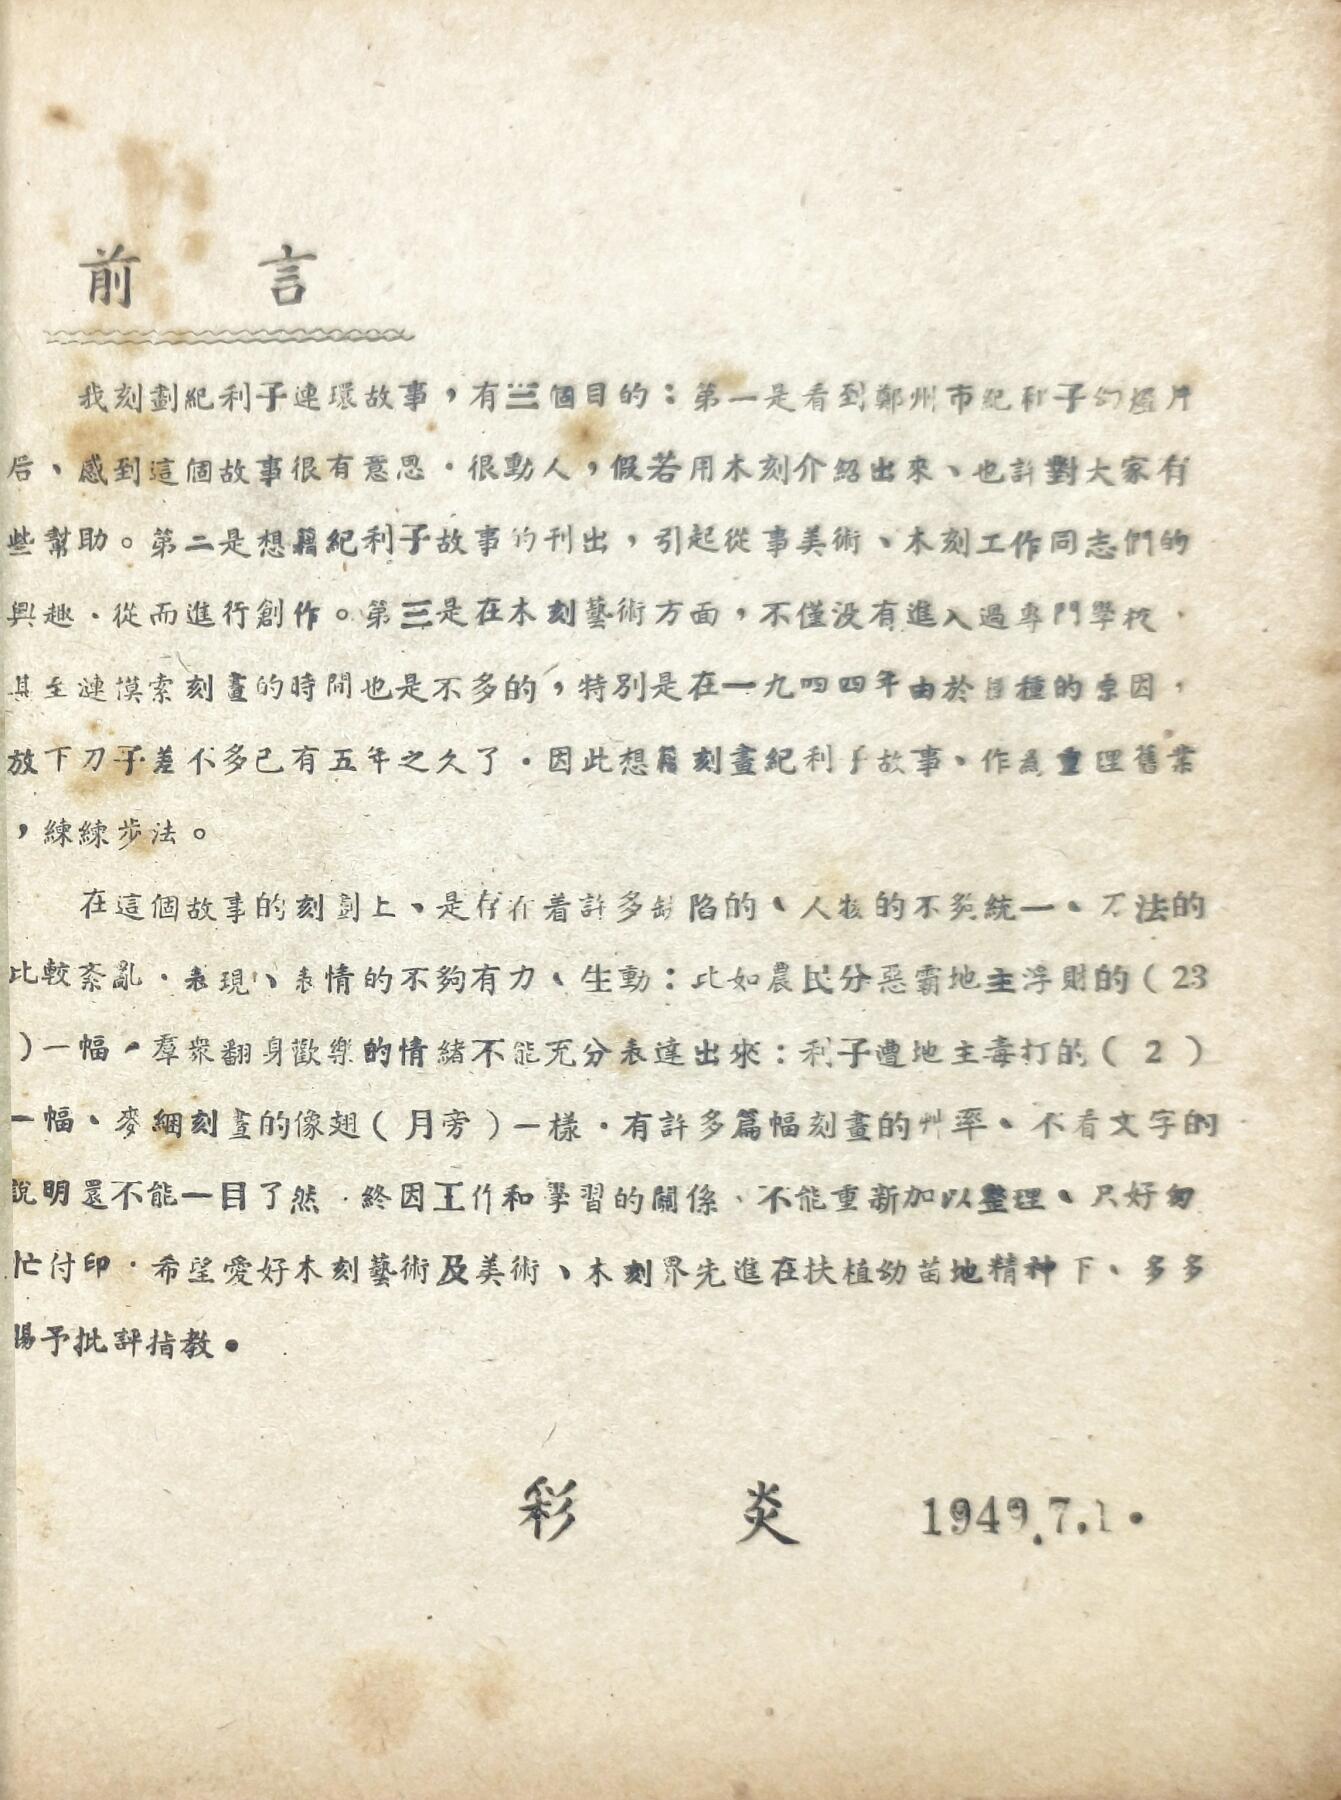 前言
我刻劃紀利子連環故事，有三個目的：第一是看到鄭州市紀利子幻燈片
后、感到這個故事很有意思．很動人，假若用木刻介紹出來、也許對大家有
些幫助。第二是想藉紀利子故事的刊出，引起從事美術、木刻工作同志們的
興趣．從而進行創作。第三是在木刻藝術方面，不僅没有進入過專門學校．
其至連摸索刻畫的時間也是不多的，特別是在一九四四年由於種的原因，
放下刀子差不多已有五年之久了．因此想藉刻畫紀利子故事、作為重理舊業
，練練步法。
在這個故事的刻劃上、是存在着許多缺陷的、人物的不夠統一、刀法的
比較紊亂．表現、表情的不夠有力、生動：比如農民分惡霸地主浮財的（23
）一幅，羣衆翻身歡樂的情緒不能充分表達出來：利子遭地主毒打的（2）
一幅、麥綑刻畫的像翅（月旁）一樣．有許多篇幅刻畫的艸率、不看文字的
說明還不能一目了然．終因工作和學習的關係、不能重新加以整理、只好匆
忙付印．希望愛好木刻藝術及美術、木刻界先進在扶植幼苗地精神下、多多
賜予批評指教．
彩炎 1949.7.1．